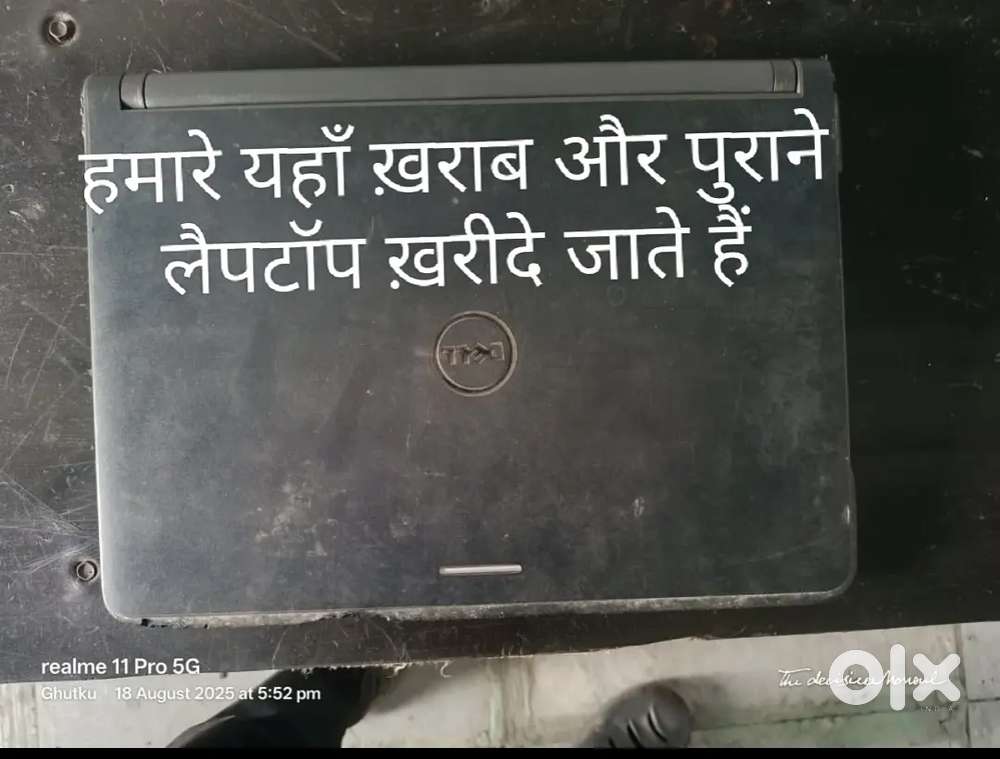 हमारे यहाँ ख़राब और पुराने
लैपटॉप ख़रीदे जाते हैं
DELL
realme 11 Pro 5G
Ghutku 18 August 2025 at 5:52 pm
The decisive Moment
olx
INDIA